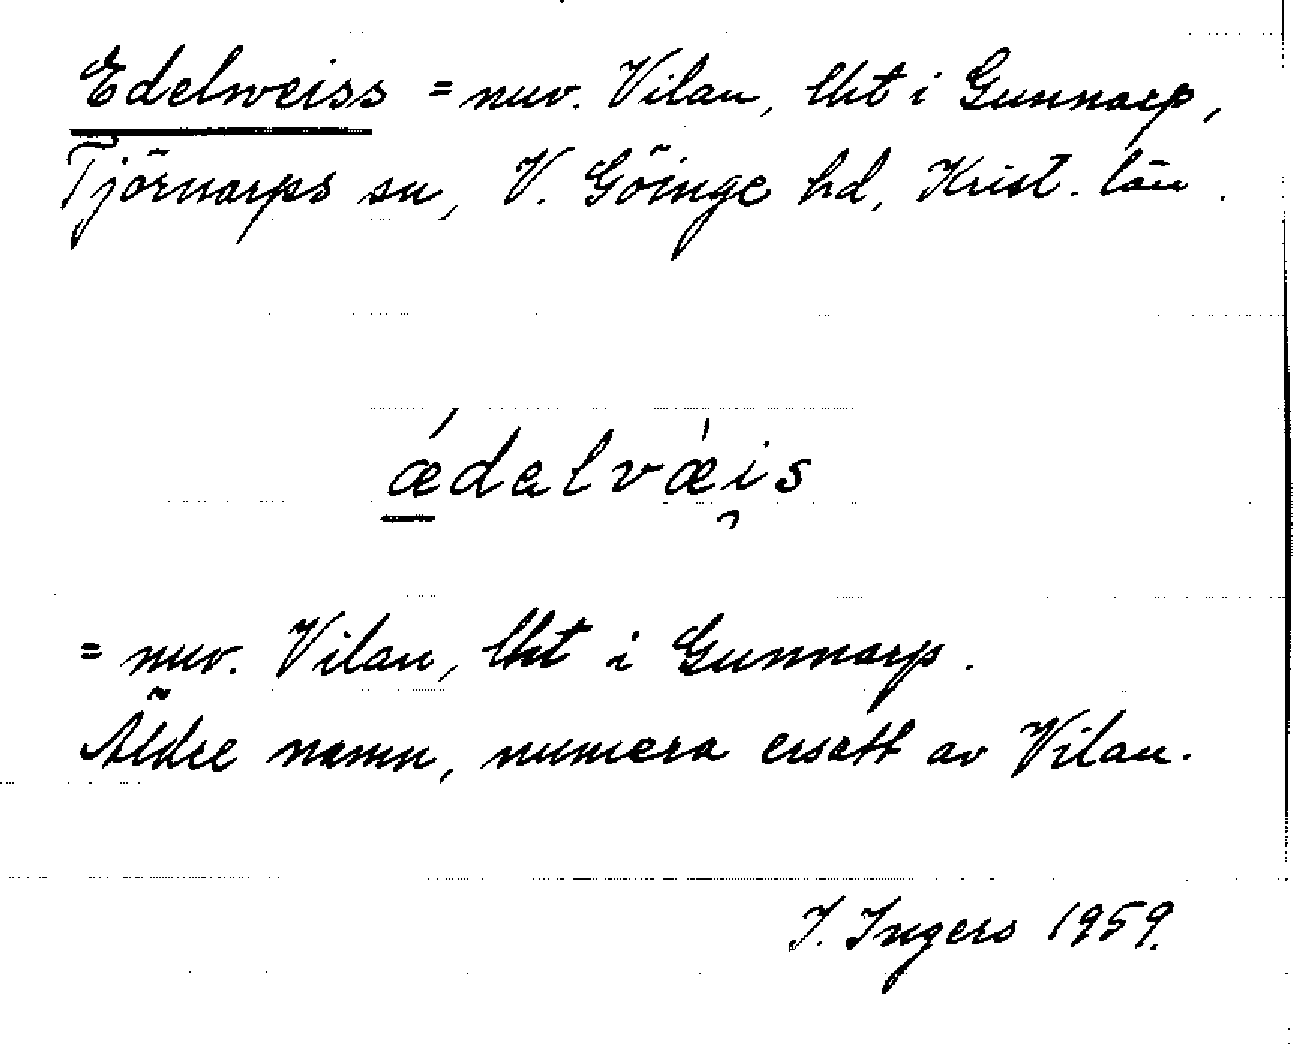 Edelweiss = nuv. Vilan, lht i Gunnarp,
Tjörnarps sn, V. Göinge hd, Krist. län.
ǽdəlvæ̀i̯s
= nuv. Vilan, lht i Gunnarp.
Äldre namn, numera ersatt av Vilan.
I. Ingers 1959.